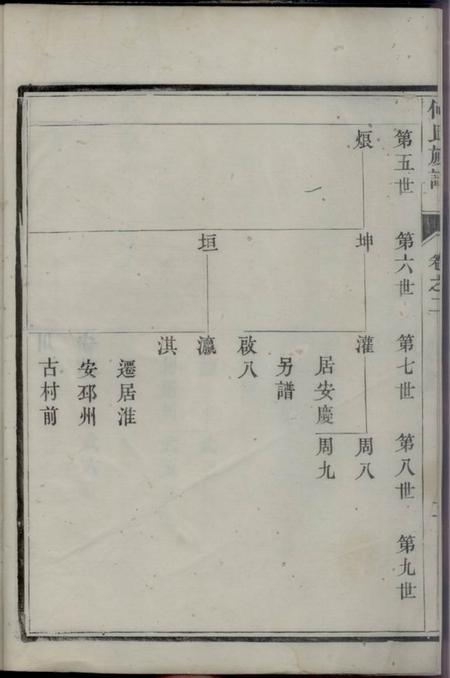 何氏族譜
卷之二
第五世
第六世
第七世
第八世
第九世
煨
坤
灌
周八
居安慶
周九
另譜
啟八
垣
瀛
淇
遷居淮
安邳州
古村前